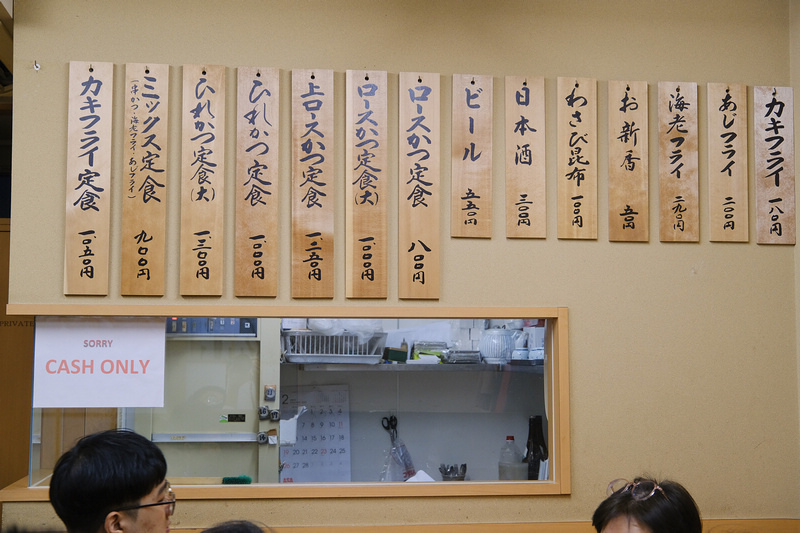 カキフライ 一八〇円
あじフライ 二〇〇円
海老フライ 二九〇円
お新香 五〇円
わさび昆布 一〇〇円
日本酒 三〇〇円
ビール 五五〇円
ロースかつ定食 八〇〇円
ロースかつ定食(大) 一、〇〇〇円
上ロースかつ定食 一、二五〇円
ひれかつ定食 一、〇〇〇円
ひれかつ定食(大) 一、三〇〇円
ミックス定食 九〇〇円
(串かつ・海老フライ・あじフライ)
カキフライ定食 一、〇五〇円
PRIVATE
SORRY
CASH ONLY
2
19 20 21 22 23 24 25
26 27 28